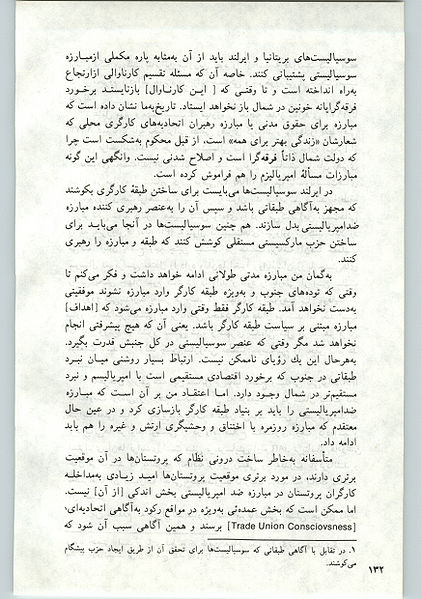 سوسیالیست‌های بریتانیا و ایرلند باید از آن به‌مثابه پاره مکملی ازمبـارزه
سوسیالیستی پشتیبانی کنند. خاصه آن که مسئله تقسیم کارناوالی ازارتجاع
به‌راه انداخته است و تا وقتـی که [ ایـن کارنـاوال] بازنایستـد برخـورد
فرقه‌گرایانه خونین در شمال باز نخواهد ایستاد. تاریخ‌به‌ما نشان داده است که
مبارزه برای حقوق مدنی یا مبارزه رهبران اتحادیه‌های کارگری محلی که
شعارشان «زندگی بهتر برای همه» است، از قبل محکوم به‌شکست است چرا
که دولت شمال ذاتاً فرقه‌گرا است و اصلاح شدنی نیست. وانگهی این گونه
مبارزات مسألهٔ امپریالیزم را هم فراموش کرده است.
در ایرلند سوسیالیست‌ها می‌بایست برای ساختن طبقهٔ کارگری بکوشند
که مجهز به‌آگاهی طبقاتی باشد و سپس آن را به‌عنصر رهبری کننده مبارزه
ضدامپریالیستی بدل سازند. هم چنین سوسیالیست‌ها در آنجا می‌بایـد برای
ساختن حزب مارکسیستی مستقلی کوشش کنند که طبقه و مبارزه را رهبری
کنند.
به‌گمان من مبارزه مدتی طولانی ادامه خواهد داشت و فکر می‌کنم تا
وقتی که توده‌های جنوب و به‌ویژه طبقه کارگر وارد مبارزه نشوند موفقیتی
به‌دست نخواهد آمد. طبقه کارگر فقط وقتی وارد مبارزه می‌شود که [اهداف]
مبارزه مبتنی بر سیاست طبقه کارگر باشد. یعنی آن که هیچ پیشرفتی انجام
نخواهد شد مگر وقتی که عنصر سوسیالیستی در کل جنبش قدرت بگیرد.
به‌هرحال این یك رؤیای ناممکن نیست. ارتباط بسیار روشنی میـان نبـرد
طبقاتی در جنوب که برخورد اقتصادی مستقیمی است با امپریالیسم و نبرد
مستقیم‌تر در شمال وجود دارد. امـا اعتقـاد من بر آن اسـت که مبـارزه
ضدامپریالیستی را باید بر بنیاد طبقه کارگر بازسازی کرد و در عین حال
معتقدم که مبارزه روزمره با اختناق و وحشیگری ارتش و غیره را هم باید
ادامه داد.
متأسفانه به‌خاطر ساخت درونی نظام که پروتستان‌ها در آن موقعیت
برتری دارند، در مورد برتری موقعیت پروتستان‌ها امیـد زیـادی به‌مداخلـه
کارگران پروتستان در مبارزه ضد امپریالیستی بخش اندکی [از آن] نیست.
اما ممکن است که بخش عمده‌ئی به‌ویژه در مواقع رکود به‌آگاهی اتحادیه‌ای۱
[Trade Union Consciovsness] برسند و همین آگاهی سبب آن شود که
۱. در تقابل با آگاهی طبقاتی که سوسیالیست‌ها برای تحقق آن از طریق ایجاد حزب پیشگام
می‌کوشند.
۱۳۲